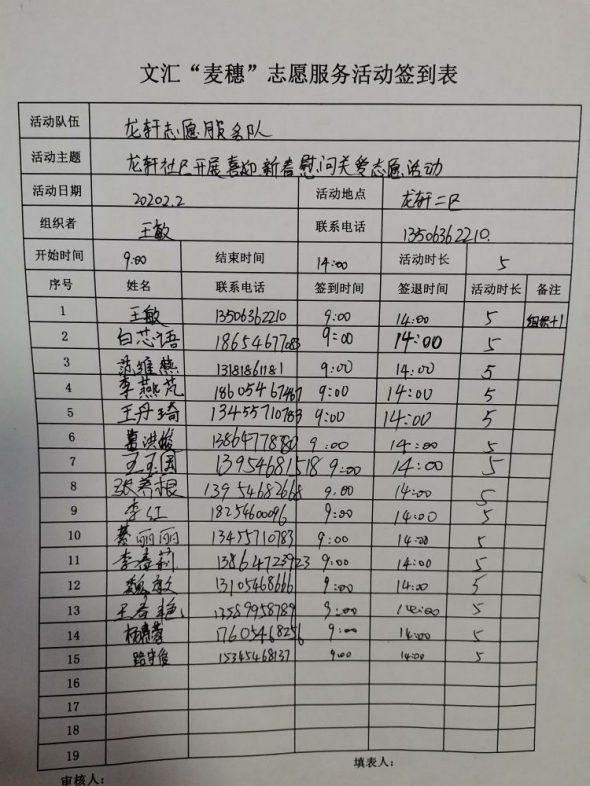 文汇“麦穗”志愿服务活动签到表
活动队伍 龙轩志愿服务队
活动主题 龙轩社区开展喜迎新春慰问关爱志愿活动
活动日期 20202.2 活动地点 龙轩二区
组织者 王敏 联系电话 13506362210.
开始时间 9:00 结束时间 14:00 活动时长 5
序号 姓名 联系电话 签到时间 签退时间 活动时长 备注
1 王敏 13506362210 9:00 14:00 5 组织+1
2 白芯语 18654677083 9:00 14:00 5
3 范维燕 13181861181 9:00 14:00 5
4 李燕芃 18605467467 9:00 14:00 5
5 王丹琦 13455710783 9:00 14:00 5
6 葛洪俊 13864778780 9:00 14:00 5
7 王玉国 13954681518 9:00 14:00 5
8 张寿根 13954682668 9:00 14:00 5
9 李红 18254600096 9:00 14:00 5
10 綦丽丽 13455710783 9:00 14:00 5
11 李春莉 13864723923 9:00 14:00 5
12 魏敏 13105468666 9:00 14:00 5
13 王春艳 13589958789 9:00 14:00 5
14 17605468256 9:00 14:00 5
15 路守俊 15345468137 9:00 14:00 5
16
17
18
19
审核人： 填表人：